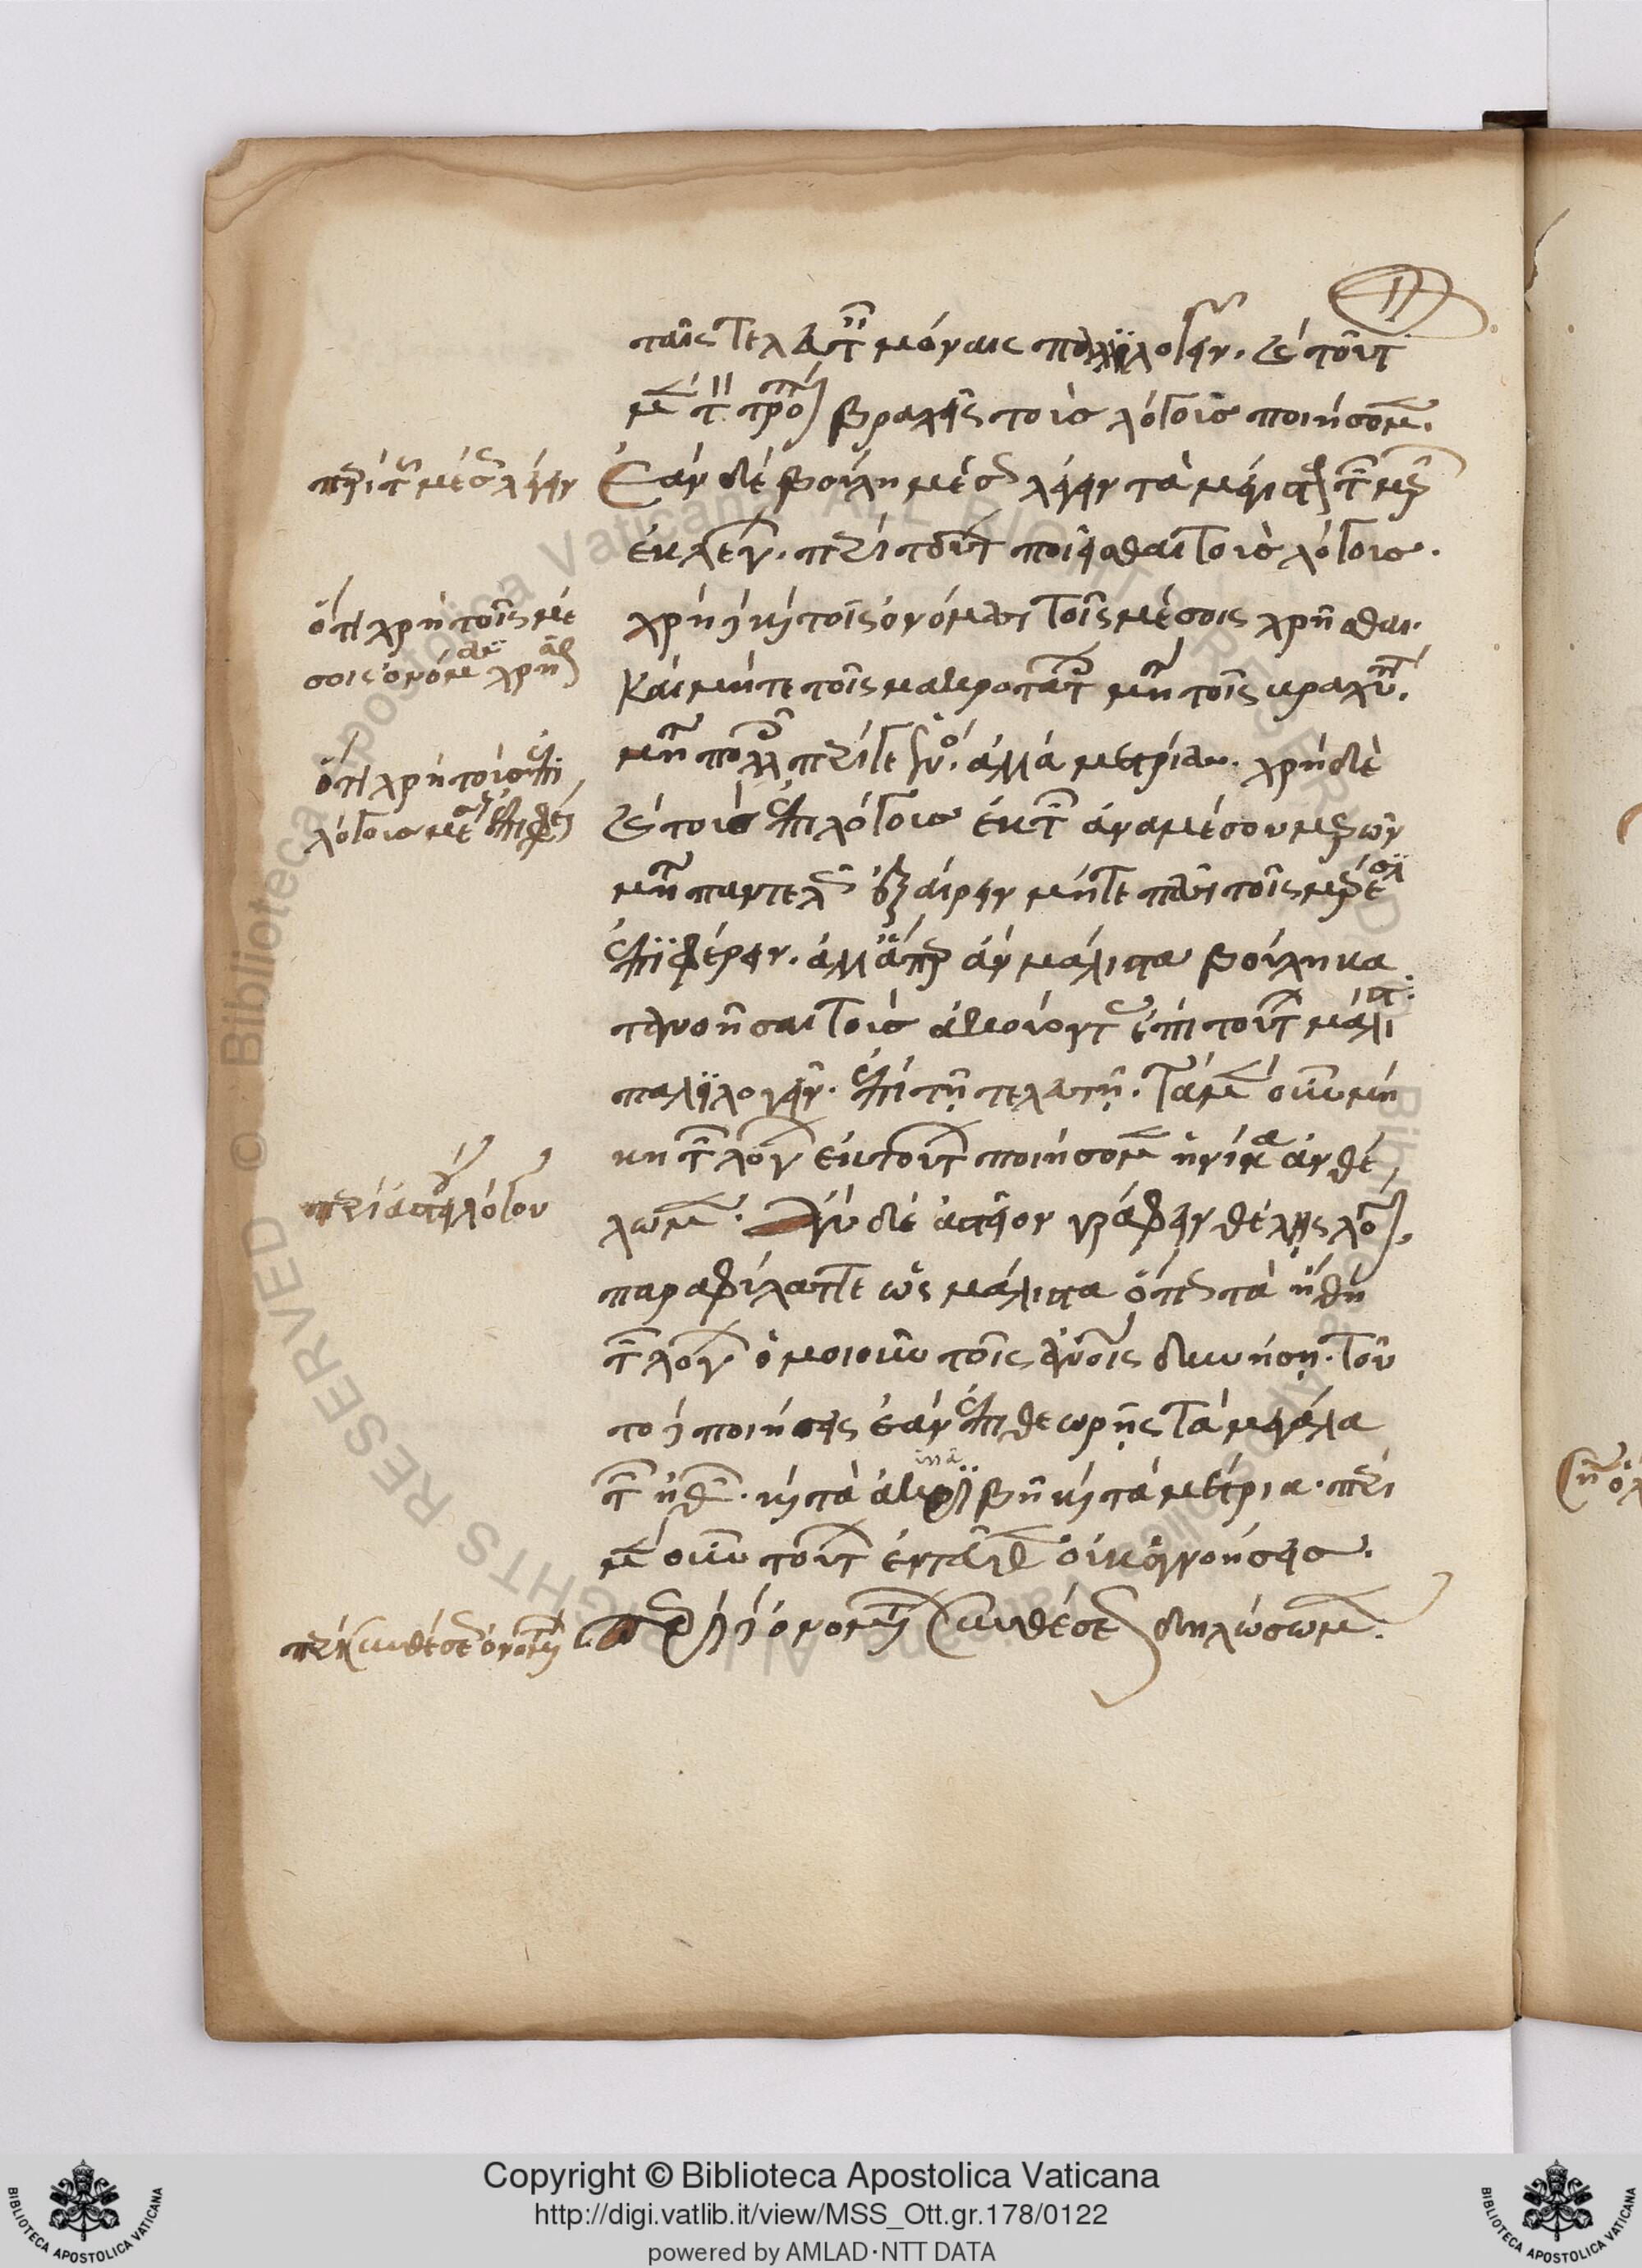 ταῖς τελευταίαις μόναις παλιλλογεῖν. καὶ τούτων
μὲν τὸν τρόπον βραχεῖς τοὺς λόγους ποιήσομεν.
περὶ τοῦ μέσως λέγειν
ἐὰν δὲ βούλῃ μέσως λέγειν τὰ μέγιστα τῶν μερῶν
ἐκλέγων. περὶ τούτων ποιεῖσθαι τοὺς λόγους.
ὅτι χρὴ τοῖς μέ
σοις ὀνόμασι χρῆσθαι
χρὴ καὶ τοῖς ὀνόμασι τοῖς μέσοις χρῆσθαι.
καὶ μήτε τοῖς μακροτάτοις μήτε τοῖς βραχυτάτοις.
ὅτι χρὴ τοὺς ἐπι
λόγους μετ ἐπιφέρειν
μήτε πολλοῖς περὶ ἑνός. ἀλλὰ μετρίοις. χρὴ δὲ
καὶ τοὺς ἐπιλόγους ἐκ τῶν ἀνὰ μέσον μερῶν
μήτε παντελῶς ἐξαίρειν μήτε πᾶσι τοῖς μέρεσιν
ἐπιφέρειν. ἀλλ' ἅπερ ἂν μάλιστα βούλῃ κα
τανοῆσαι τοὺς ἀκούοντας ἐπὶ τούτοις μάλιστα
παλιλλογεῖν. ἐπὶ τῇ τελευτῇ. τὰ μὲν οὖν μή
κη τῶν λόγων ἐκ τούτων ποιήσομεν ἡνίκα ἂν θέ
περὶ ἀστείου λόγου
λωμεν. ἐὰν δὲ ἀστεῖον γράφειν θέλῃς λόγον.
παραφύλαττε ὡς μάλιστα ὅπως τὰ ἤθη
τῶν λόγων ὁμοιοῦν τοῖς ἀνθρώποις δυνήσῃ. τοῦ
το ποιήσεις ἐὰν ἐπιθεωρῇς τὰ μεγάλα
τῶν ἠθῶν. καὶ τὰ ἀκριβῆ καὶ τὰ μέτρια. περὶ
μὲν οὖν τούτων ἐντεῦθεν οὐκ ἀγνοήσεις.
περὶ συνθέσεως ὀνομάτων
περὶ δὲ ὀνομάτων συνθέσεως δηλώσωμεν.
Copyright © Biblioteca Apostolica Vaticana
http://digi.vatlib.it/view/MSS_Ott.gr.178/0122
powered by AMLAD·NTT DATA
BIBLIOTECA APOSTOLICA VATICANA
BIBLIOTECA APOSTOLICA VATICANA